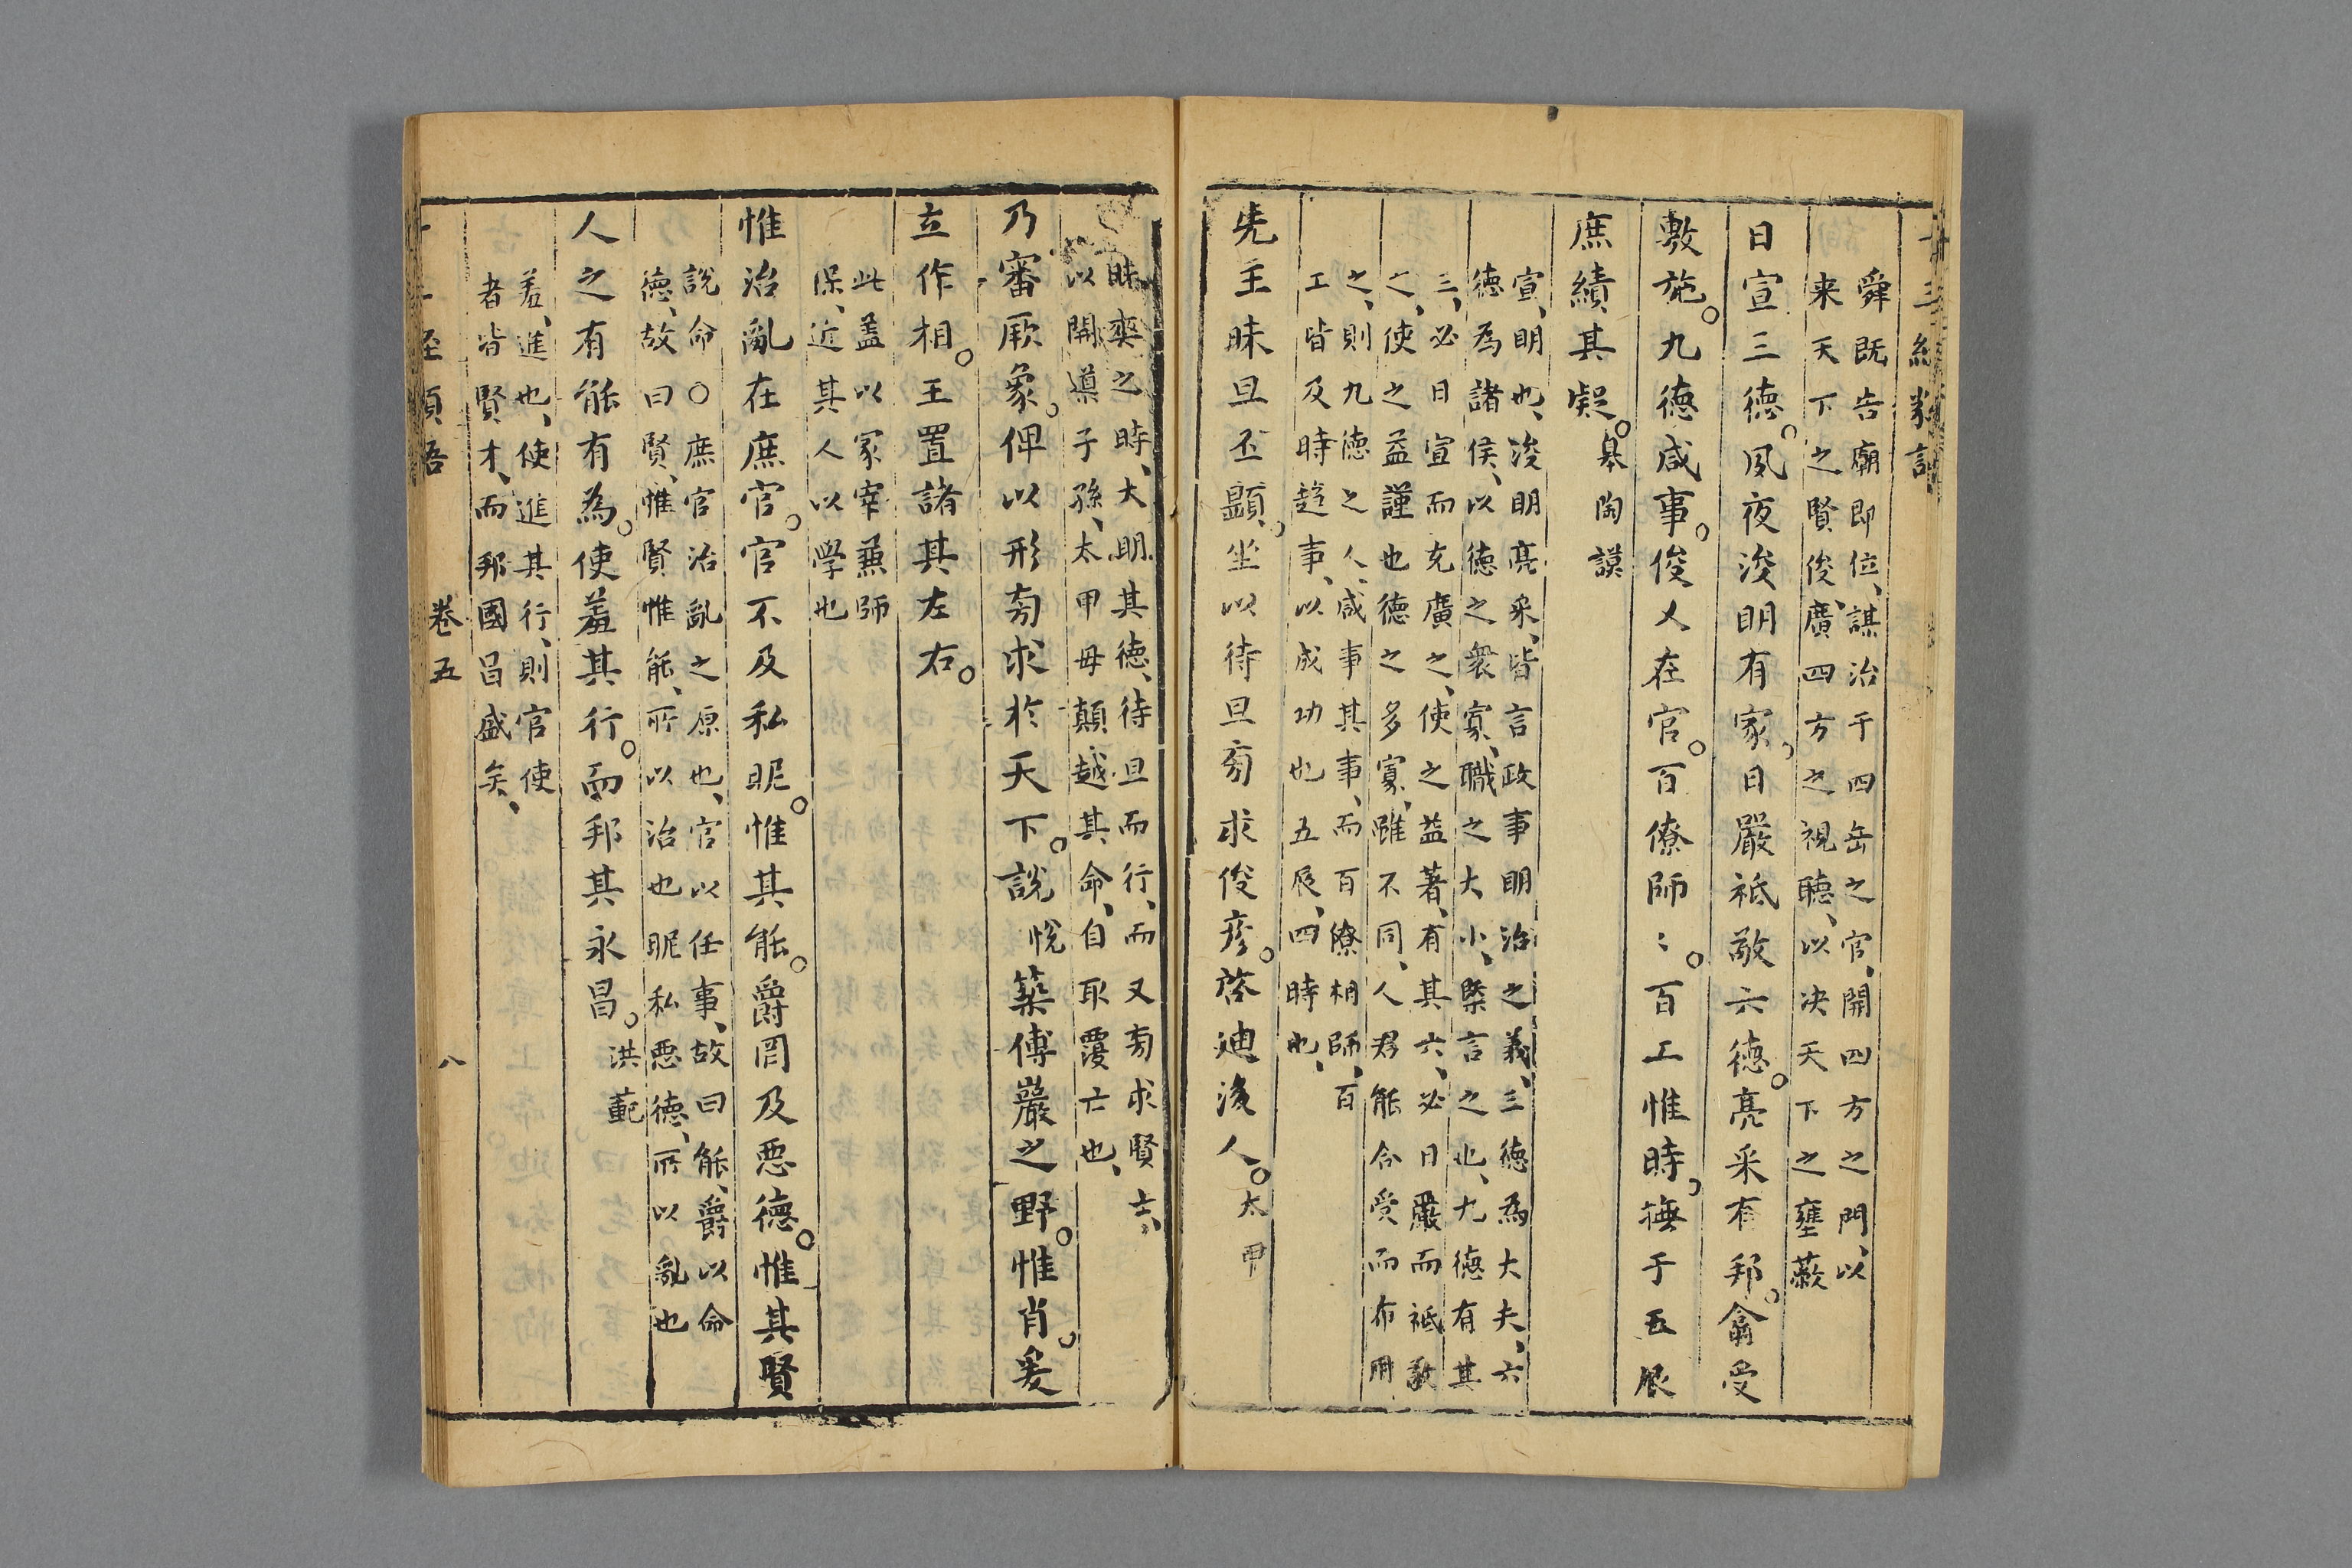 舜既告廟即位、謀治于四岳之官、開四方之門、以
来天下之賢俊、廣四方之視聽、以决天下之壅蔽
日宣三德。夙夜浚明有家。日嚴祗敬六德。亮采有邦。翕受
敷施。九德咸事。俊乂在官。百僚師〻。百工惟時。撫于五辰
庶績其凝。皋陶謨
宣、明也、浚明亮采、皆言政事明治之義、三德為大夫、六
德為諸侯、以德之衆寡、職之大小、槩言之也、九德有其
三、必日宣而充廣之、使之益著、有其六、必日嚴而祗敬
之、使之益謹也德之多寡、雖不同、人君能合受而布用
之、則九德之人、咸事其事、而百僚相師、百
工皆及時趍事、以成功也 五辰、四時也、
先王昧旦丕顯。坐以待旦旁求俊彦。啓迪後人。太甲
昧爽之時、大明其德、待旦而行、而又旁求賢士、
以開導子孫、太甲毋顛越其命、自取覆亡也、
乃審厥象。俾以形旁求於天下。說悅築傅巖之野。惟肖。爰
立作相。王置諸其左右。
此盖以冢宰兼師
保、近其人以学也
惟治亂在庶官。官不及私昵。惟其能。爵罔及惡德。惟其賢
說命○庶官治亂之原也、官以任事、故曰能、爵以命
德、故曰賢、惟賢惟能、所以治也昵私惡德、所以亂也
人之有能有為。使羞其行。而邦其永昌。洪範
羞、進也、使進其行、則官使
者皆賢才、而邦國昌盛矣、
卷五
八